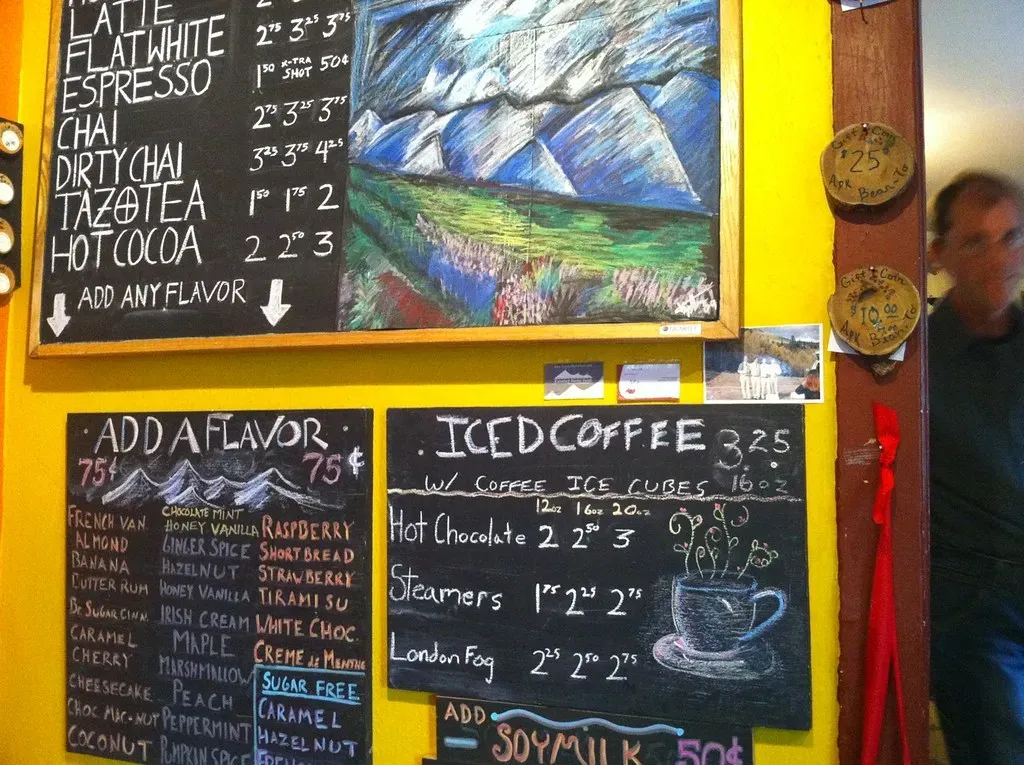 LATTE
FLATWHITE 2.75 3.25 3.75
ESPRESSO 1.50 X-TRA SHOT 50¢
CHAI 2.75 3.25 3.75
DIRTY CHAI 3.25 3.75 4.25
TAZO TEA 1.50 1.75 2
HOT COCOA 2 2.50 3
ADD ANY FLAVOR
$25
Bean-To
$10.00
ADD A FLAVOR
75¢ 75¢
FRENCH VAN
ALMOND
BANANA
BUTTER RUM
CARAMEL
CHERRY
CHEESECAKE
CHOC. MAC-NUT
COCONUT
CHOCOLATE MINT
HONEY VANILLA
GINGER SPICE
HAZELNUT
HONEY VANILLA
IRISH CREAM
MAPLE
MARSHMALLOW
PEACH
PEPPERMINT
PUMPKIN SPICE
RASPBERRY
SHORTBREAD
STRAWBERRY
TIRAMISU
WHITE CHOC.
CREME de MENTHE
SUGAR FREE
CARAMEL
HAZELNUT
ICED COFFEE 3.25
W/ COFFEE ICE CUBES 16oz
12oz 16oz 20oz
Hot Chocolate 2 2.50 3
Steamers 1.75 2.25 2.75
London Fog 2.25 2.50 2.75
ADD
SOYMILK 50¢